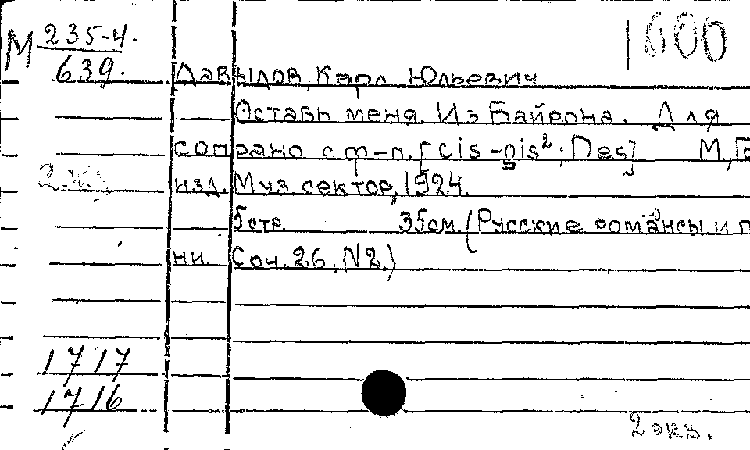 М 235-4. 1600
639.
Давыдов, Карл Юльевич
Оставь меня. Из Байрона. Для
сопрано с ф-п. [cis-gis²; Des] М, Г
изд. Муз. сектор, 1924.
5 стр. 35см. (Русские романсы и п
ни. Соч. 26, N2.)
1717
1716
2 экз.